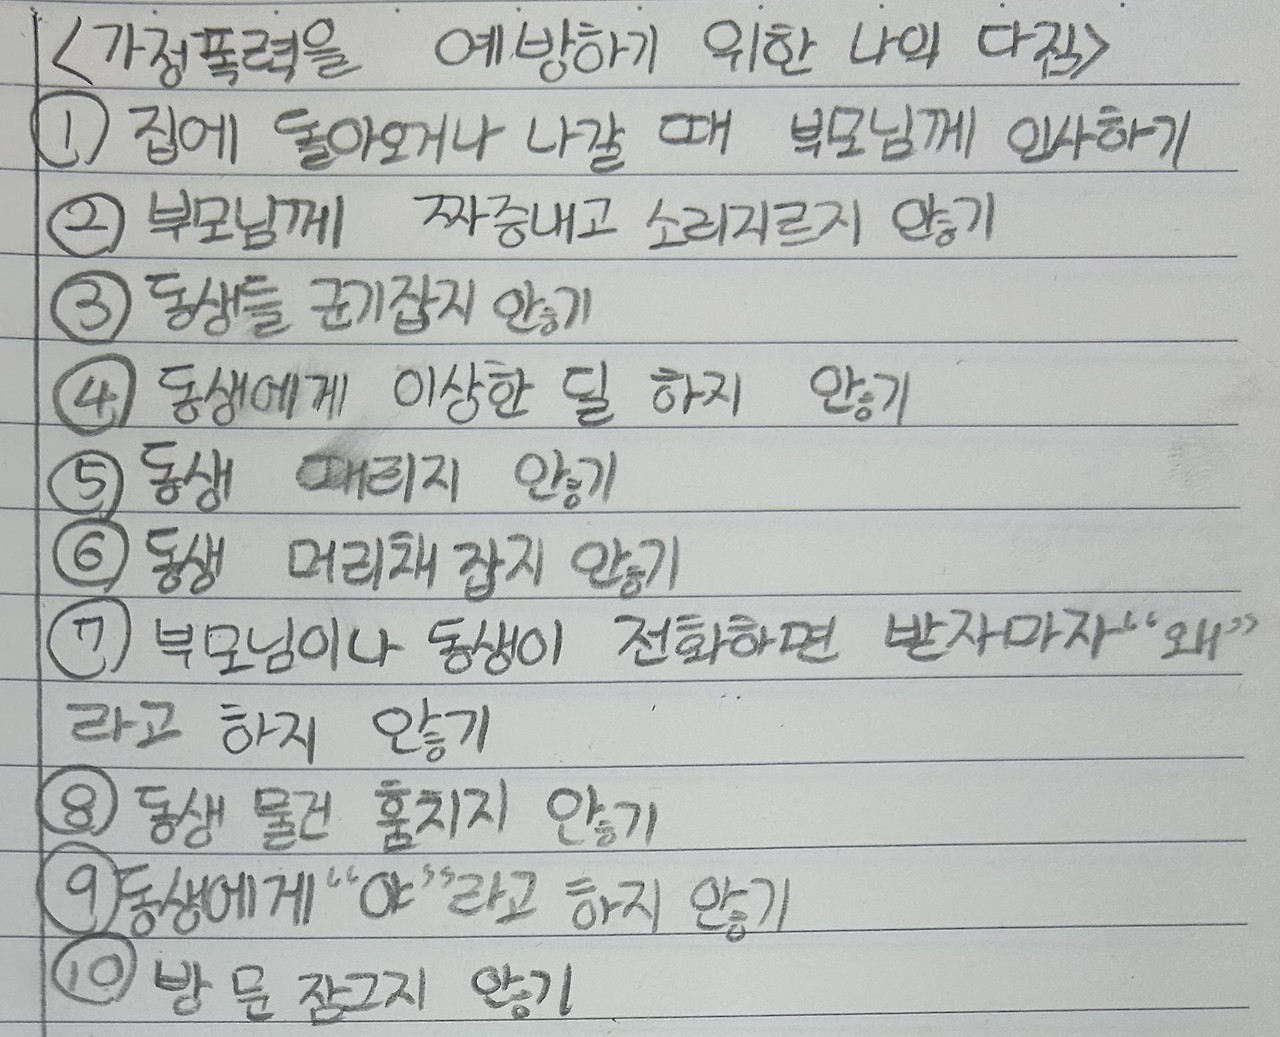 <가정폭력을 예방하기 위한 나의 다짐>
① 집에 돌아오거나 나갈 때 부모님께 인사하기
② 부모님께 짜증내고 소리지르지 않기
③ 동생들 군기잡지 않기
④ 동생에게 이상한 딜 하지 않기
⑤ 동생 때리지 않기
⑥ 동생 머리채 잡지 않기
⑦ 부모님이나 동생이 전화하면 받자마자 “왜”
라고 하지 않기
⑧ 동생 물건 훔치지 않기
⑨ 동생에게 “야”라고 하지 않기
⑩ 방 문 잠그지 않기